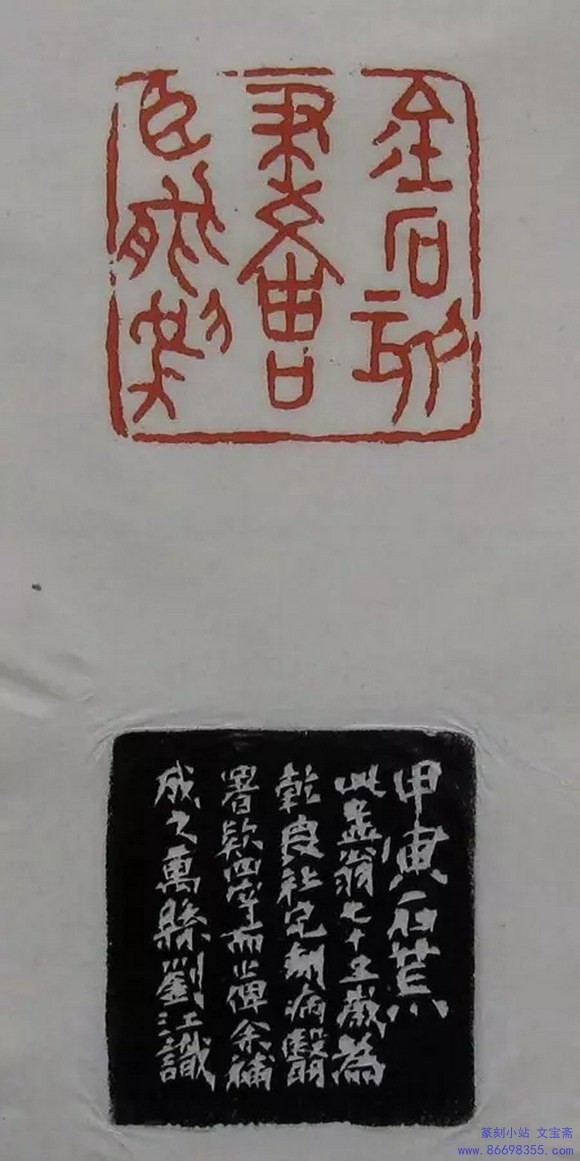 金石刻
畫
臣能為
甲寅石荒
此孟翁七十五歲為
乾良社兄制病翳
署款四字而止俾余補
成之萬縣劉江識
篆刻小站 文宝斋
www.86698355.com